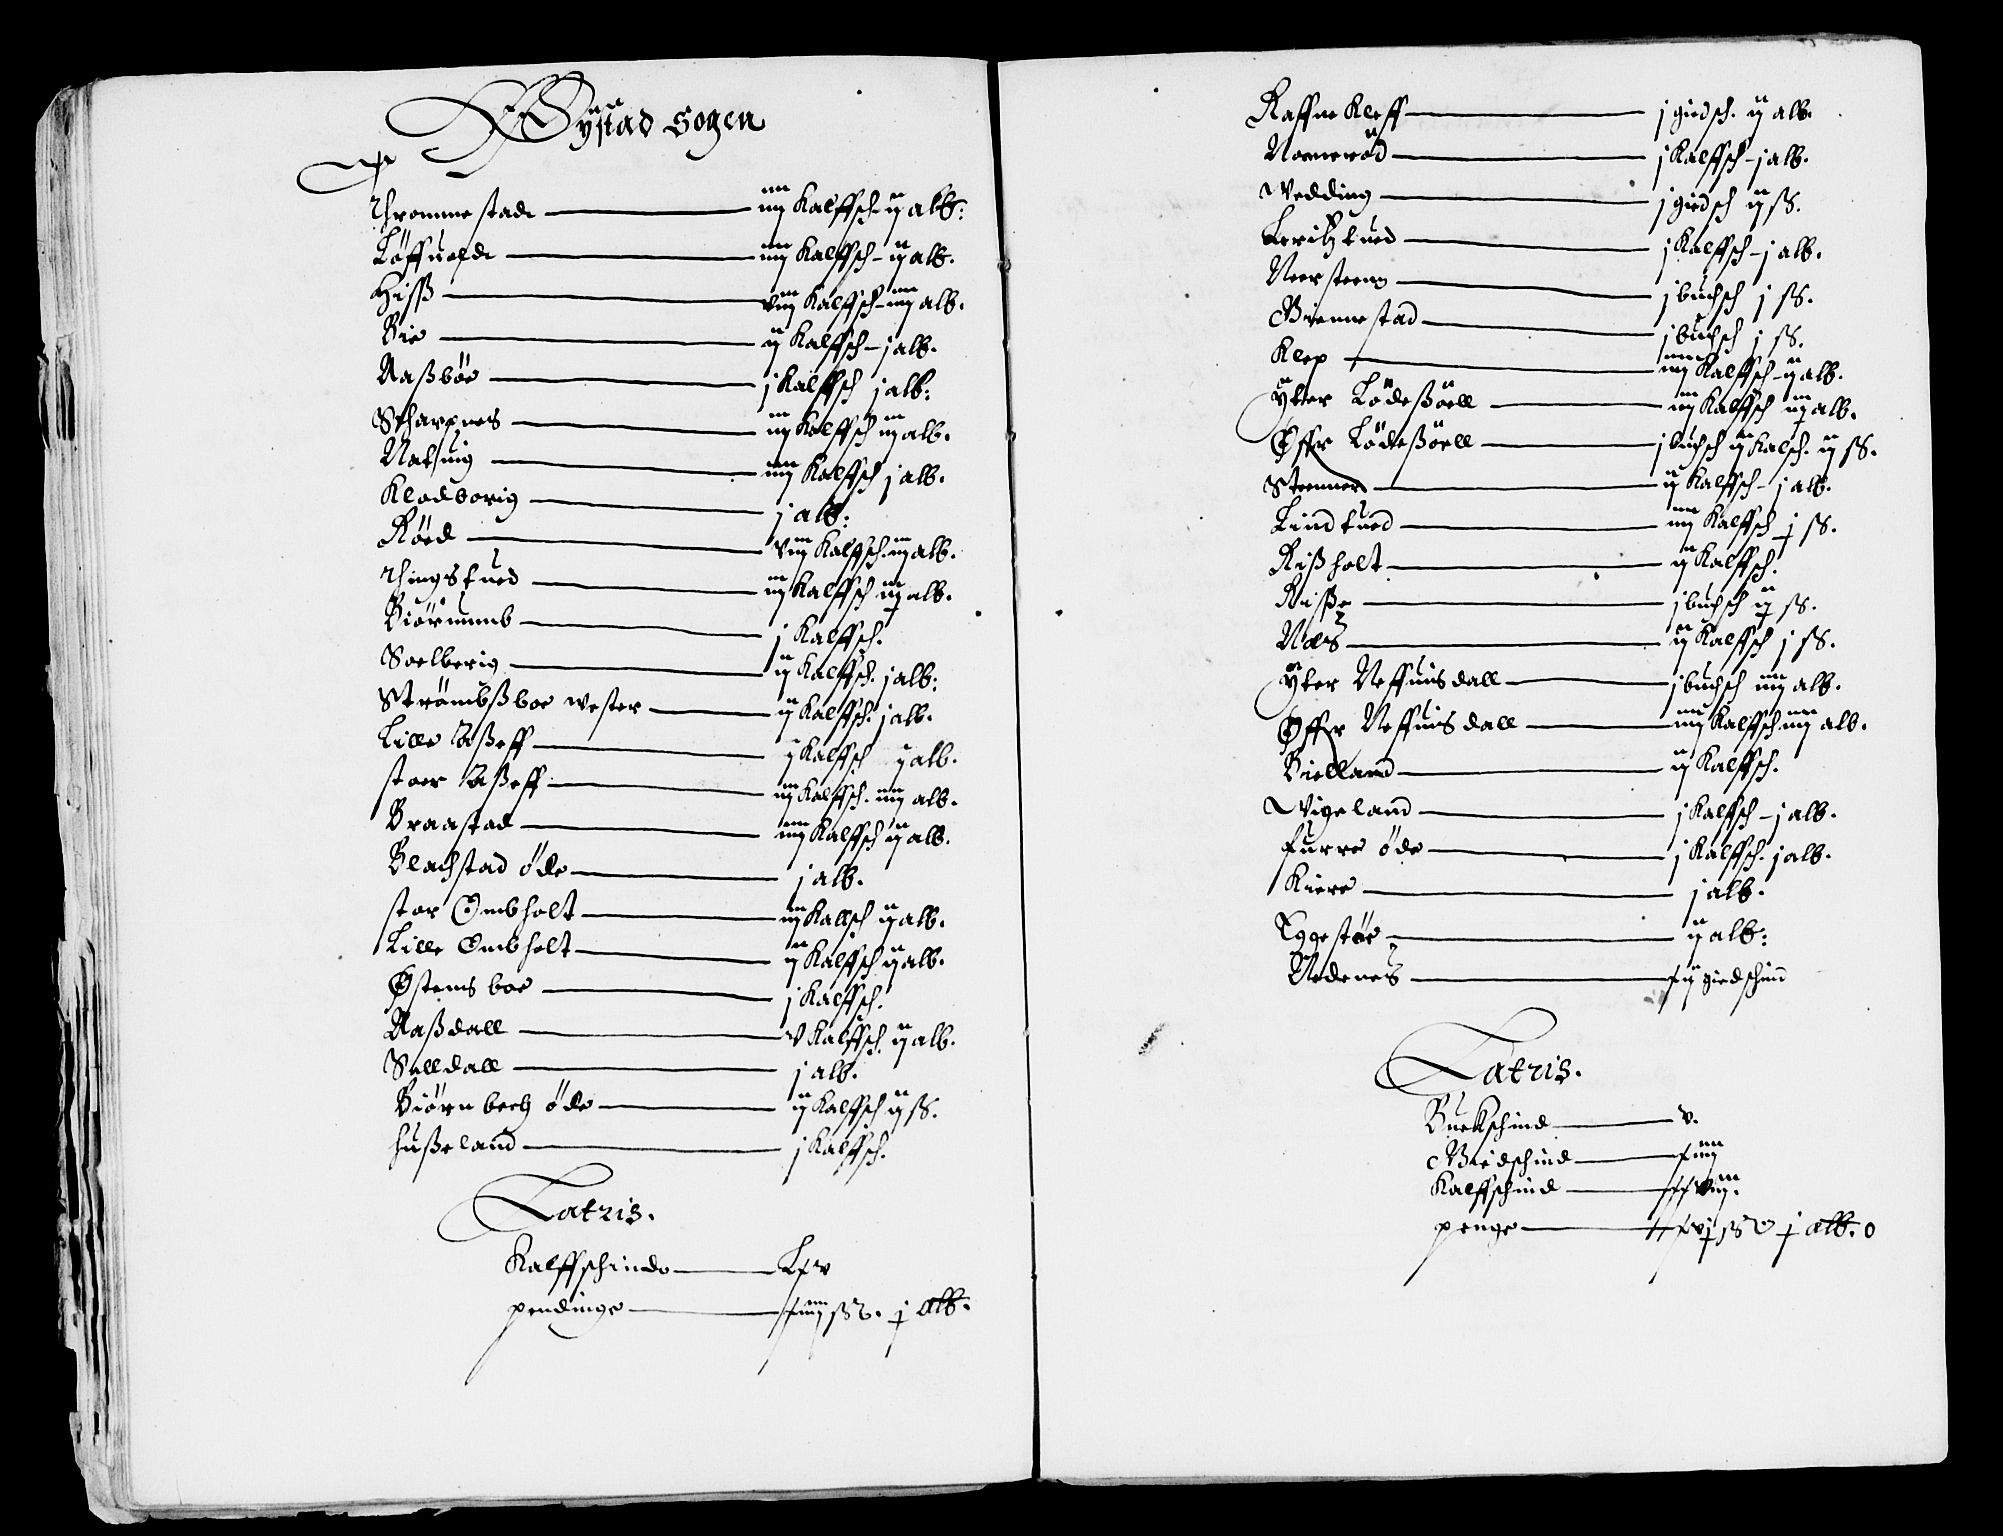 Øÿstad sogen
Thrommestade — iiij Kalffsch. ij alb:
Løffuolde — iiij Kalffsch – ij alb.
Hiss — viij Kalffsch – iiij alb.
Bie — ij Kalffsch – j alb.
Aassbøe — j Kalffsch j alb:
Scharpnes — iij Kalffsch iij alb.
Natuig — iiij Kalffsch j alb.
Klodborig — j alb:
Røed — viij Kalffsch. iij alb.
Thingstued — iij Kalffsch iij alb.
Biørnumb — j Kalffsch.
Soelberig — ij Kalffsch. j alb:
Strømbssboe wester — ij Kalffsch. j alb.
Lille Asseff — ij Kalffsch ij alb.
stoer Asseff — iij Kalffsch. iiij alb.
Braastad — iiij Kalffsch ij alb.
Blachstad øde — j alb.
stor Ombholt — iij Kallsch ij alb.
Lille Ombholt — ij Kalffsch ij alb.
Østensboe — j Kalffsch.
Aassdall — v Kalffsch. ij alb.
Selldall — j alb.
Biørnbech øde — ij Kalffsch ij ss.
husseland — j Kalffsch.
Latris.
Kalffschinde — Lxv
pendinge — xiiij ss. j alb.
Raffnekleff — j giedsch. ij alb.
Nornerød — j Kalffsch – j alb.
Wedding — j giedsch ij ss.
Leritztued — j Kalffsch – j alb.
Neersteene — j buchsch j ss.
Giennestad — j buchsch j ss.
Klep — iiij Kalffsch – ij alb.
ÿtter Lødessøell — iij Kalffsch iij alb.
Øffr Lødessøell — j buchsch ij Kalsch. ij ss.
Steenner — ij Kalffsch – j alb.
Lindtued — iiij Kalffsch j ss.
Rissholt — ij Kalffsch.
Risse — j buchsch ij ss.
Næs — ij Kalffsch j ss.
ÿter Neffuisdall — j buchsch iiij alb.
Øffr Neffuisdall — iiij Kalffsch iiij alb.
Bielland — ij Kalffsch.
Wigeland — j Kalffsch – j alb.
furre øde — j Kalffsch. j alb.
Kiere — j alb.
Eggestøe — ij alb:
Nedenes — xij giedschind
Latris.
Buckschind — v.
Giedschind — xiiij
Kalffschind — xxviij.
penge — xvj ss j alb. 0